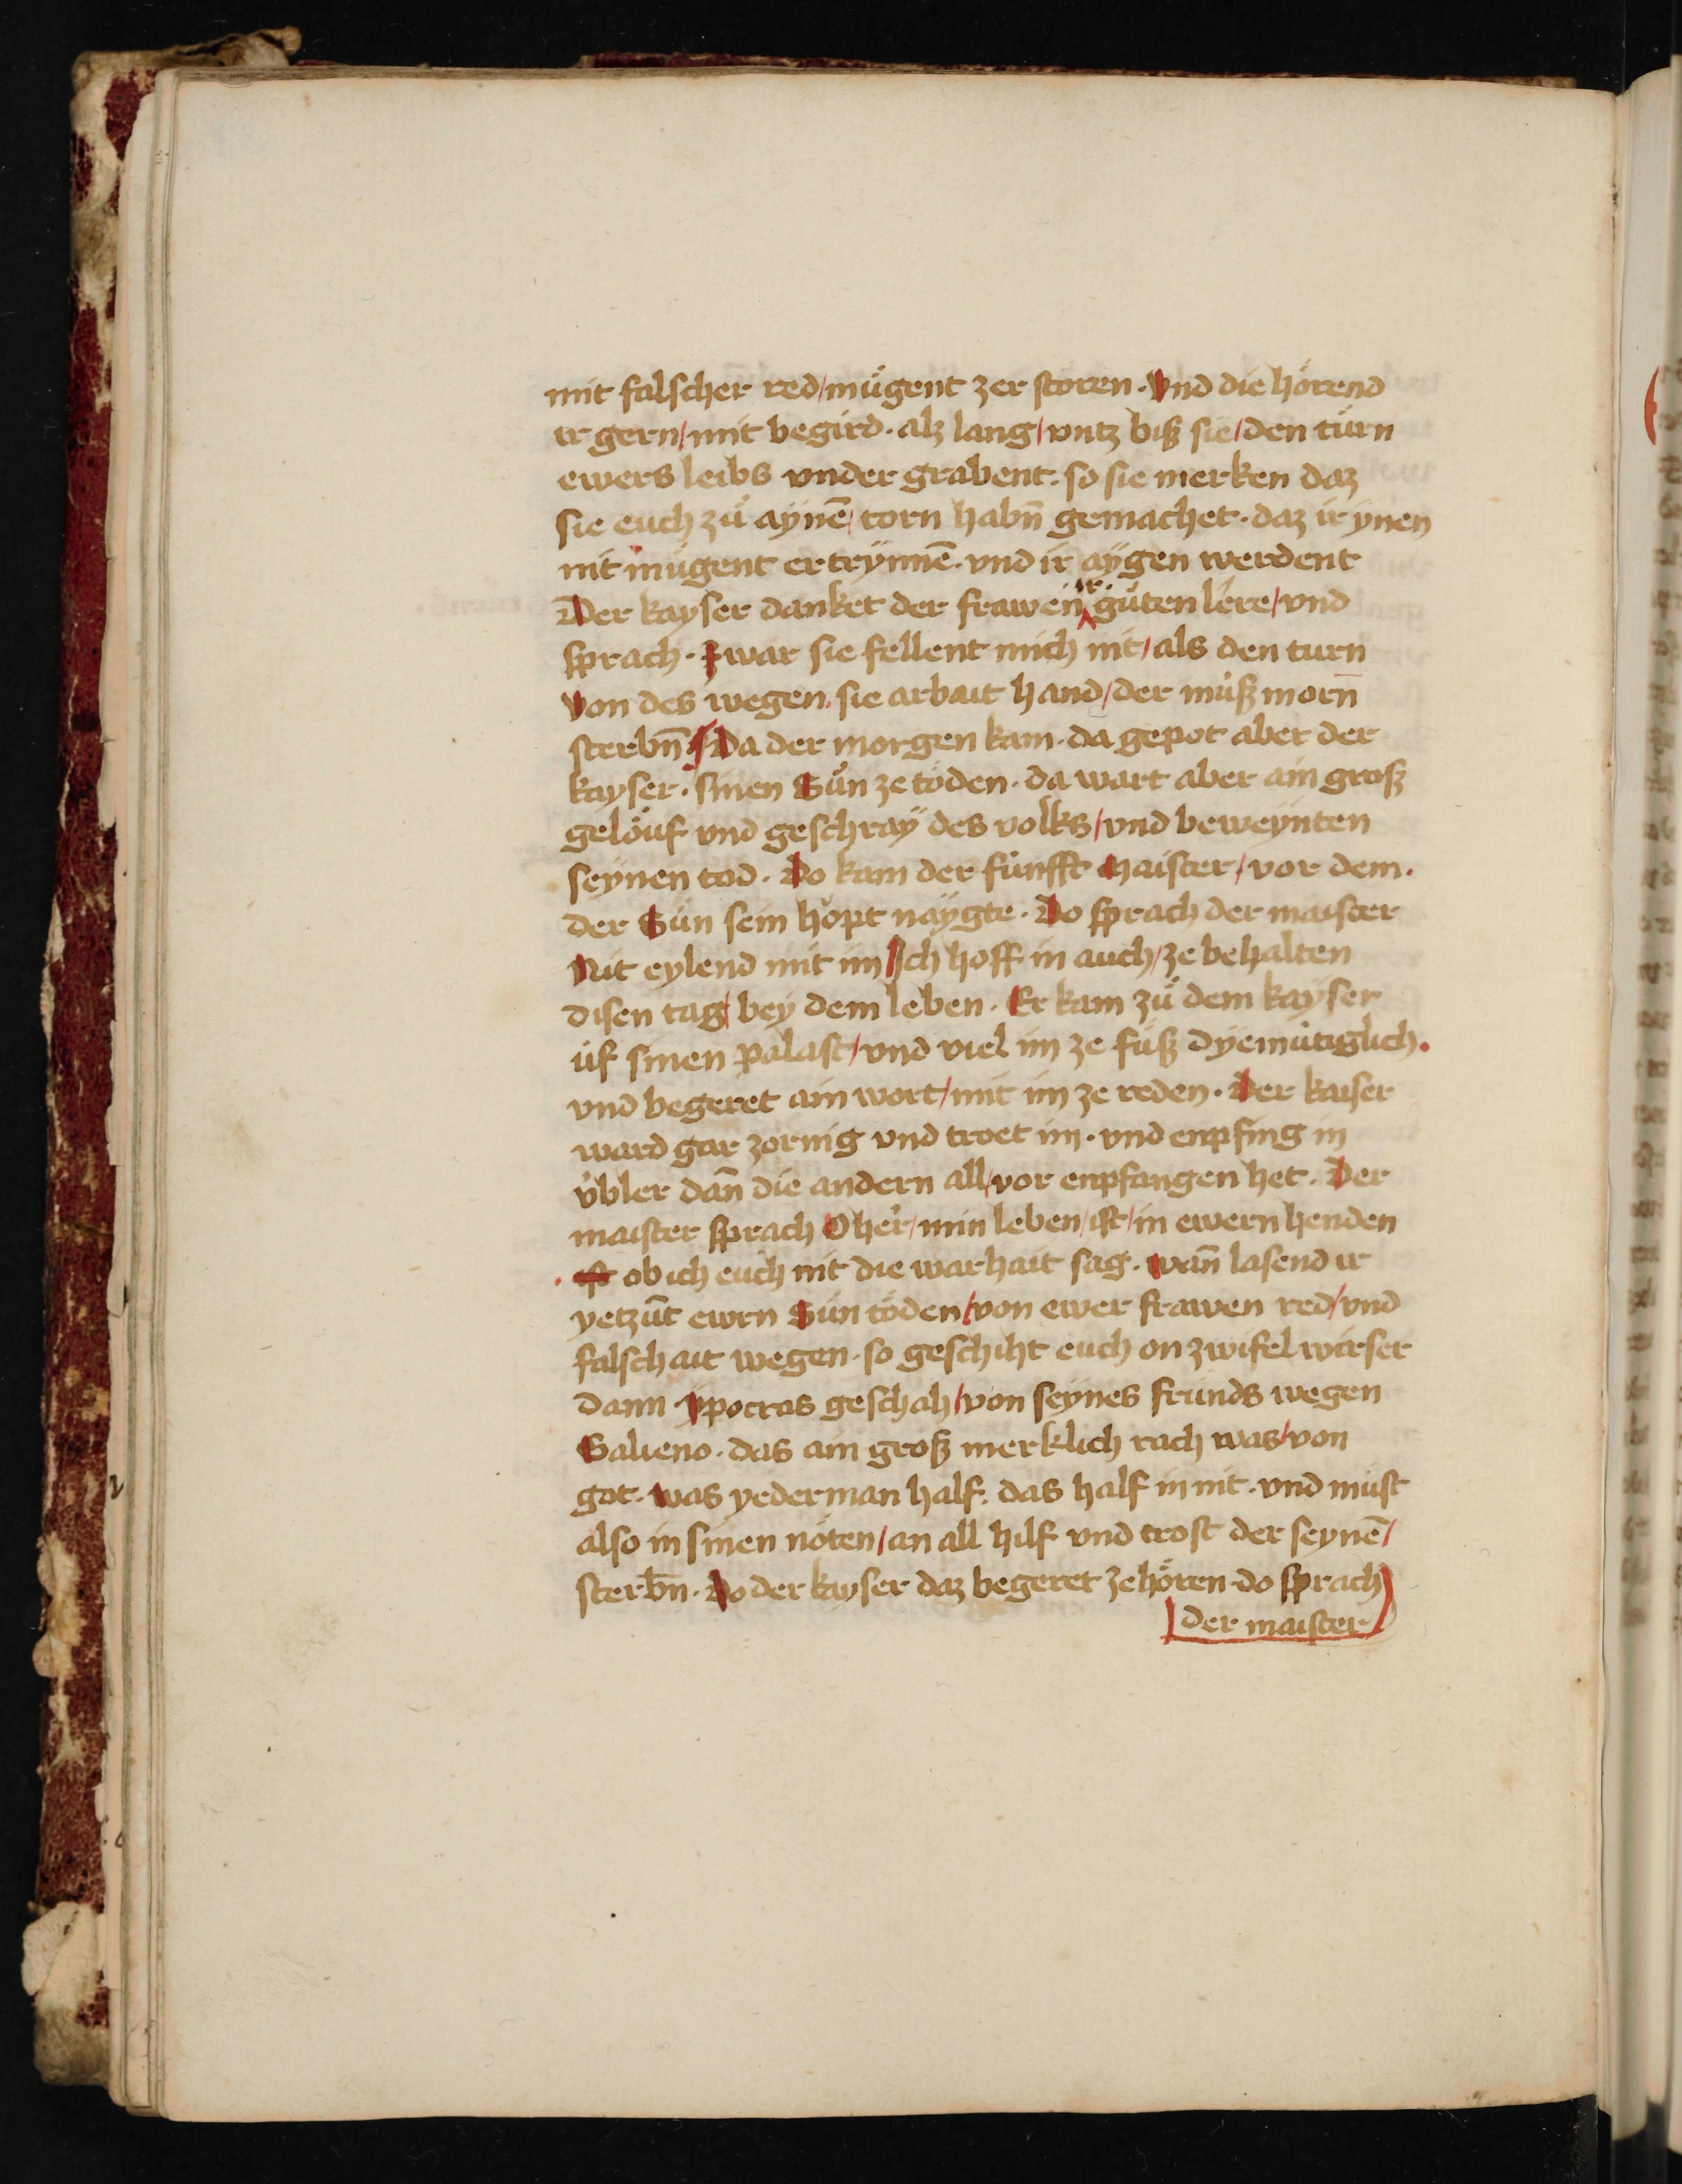 mit falscher red/mügent zer stören · Vnd die hörend
ir gern/mit begird · alz lang/vntz biß sie/den türn
ewers leibs vnder grabent · so sie merken daz
sie euch zů aynē/torn habn̄ gemachet · daz ir ynen
nit mügent ertrynnē · vnd ir aygen werdent
Der kayser danket der frawen ir güten lere/vnd
sprach · Zwar sie fellent mich nit/als den turn
Von des wegen sie arbait hand/der müß morn
sterbn̄ Da der morgen kam · da gepot aber der
kayser · sinen Sůn ze töden · da wart aber ain groß
gelöuf vnd geschray des volks/vnd beweynten
seynen tod · Do kam der fünfft Maister/vor dem ·
der Sün sein höpt naygte · Do sprach der maister
Nit eylend mit im Ich hoff in auch/ze behalten
disen tag/bey dem leben · Er kam zů dem kayser
üf sinen palast/vnd viel im ze füß dyemütiglich ·
vnd begeret ain wort/mit im ze reden · Der kaiser
ward gar zornig vnd troet im · vnd enpfing in
übler dan̄ die andern all/vor enpfangen het · Der
maister sprach O her/min leben/ist/in ewern henden
· ist ob ich euch nit die warhait sag · wan̄ lasend ir
yetzūt ewrn Sün töden/von ewer frawen red/vnd
falschait wegen · so geschiht euch on zwifel wirser
dann ypocras geschah/von seynes fründs wegen
Galieno · das ain groß merklich rach was/von
got · was yederman half · das half in nit · vnd müst
also in sinen nöten/an all hilf vnd trost der seynē/
sterbn̄ · Do der kayser daz begeret ze hören · do sprach
der maister